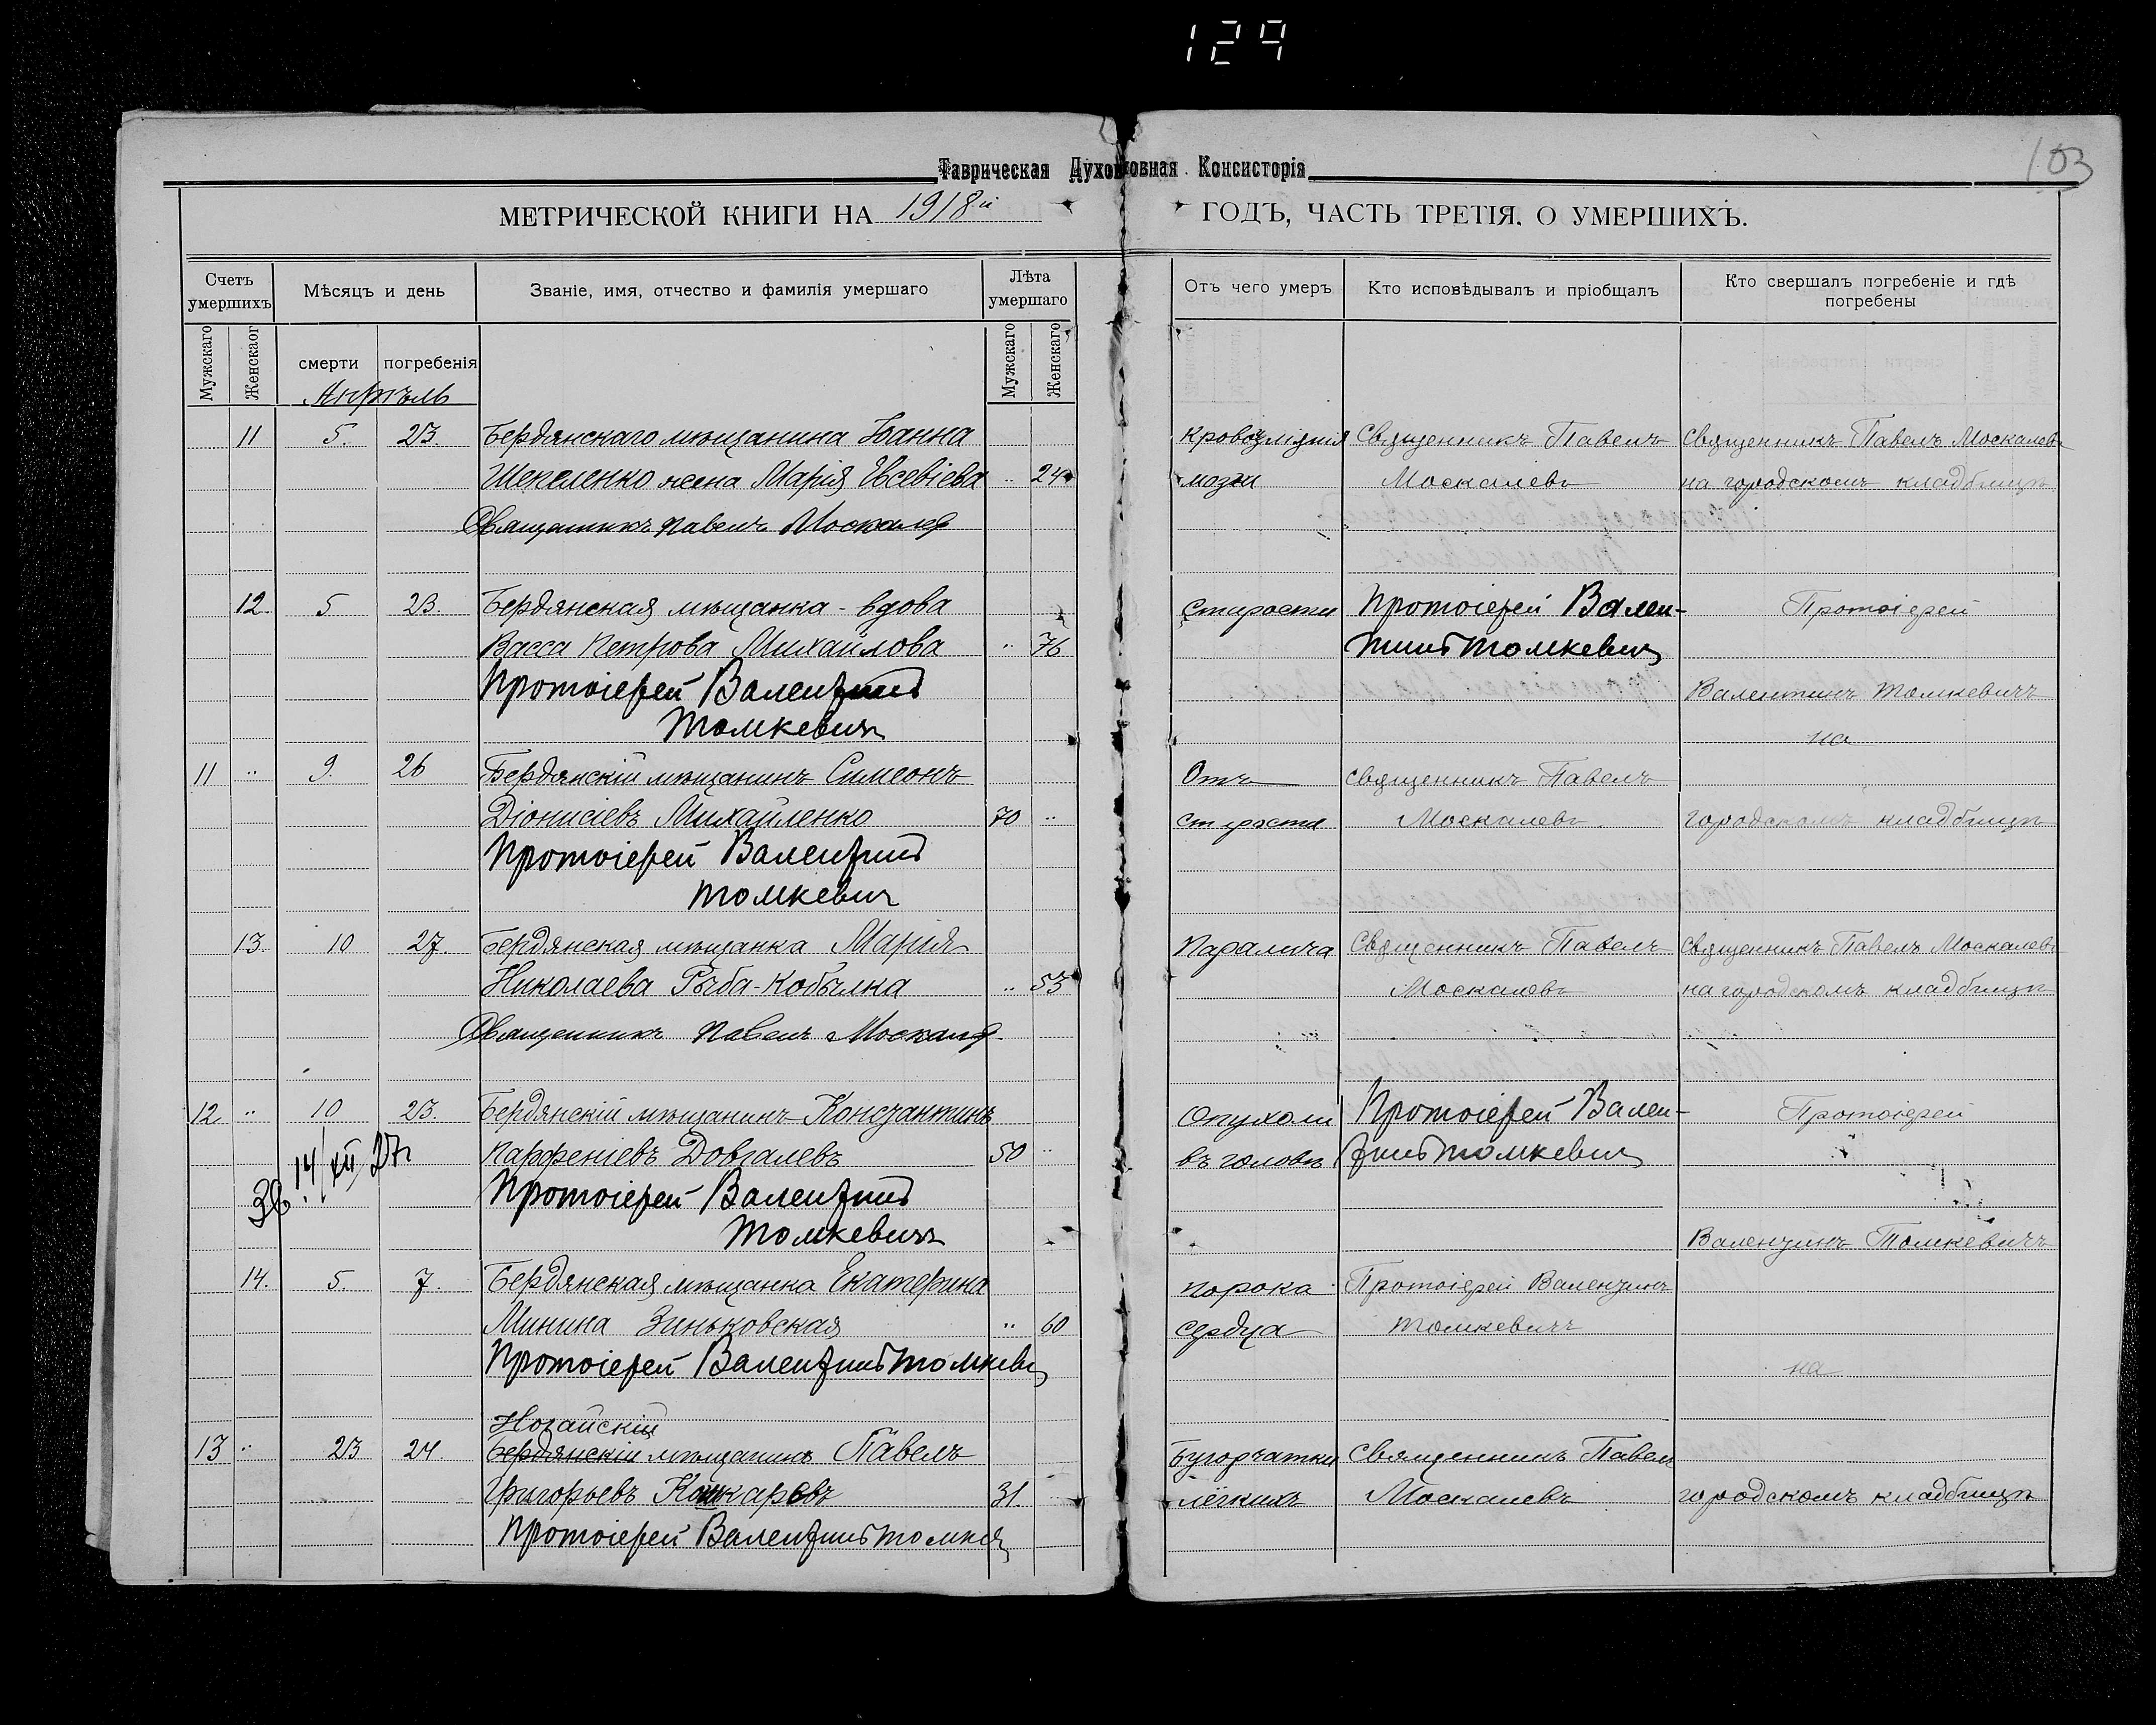 129
103
Таврическая Духовная Консисторія
МЕТРИЧЕСКОЙ КНИГИ НА 1918й ГОДЪ, ЧАСТЬ ТРЕТІЯ. О УМЕРШИХЪ.
Счетъ умершихъ
Мѣсяцъ и день
Званіе, имя, отчество и фамилія умершаго
Лѣта умершаго
Отъ чего умеръ
Кто исповѣдывалъ и пріобщалъ
Кто свершалъ погребеніе и гдѣ погребены
Мужскаго
Женскаог
смерти
погребенія
Мужскаго
Женскаго
Апрѣль
11 5. 23. Бердянскаго мѣщанина Іоанна кровоизліянія Священникъ Павелъ Священникъ Павелъ Москалевъ
Шекеленко жена Марія Евсевіева " 24 мозга Москалевъ на городскомъ кладбищѣ
Священникъ Павелъ Москалев
12. 5 23. Бердянская мѣщанка - вдова Старости Протоіерей Вален- Протоіерей
Васса Петрова Михайлова " 76 тинъ Томкевич
Протоіерей Валентинъ Валентинъ Томкевичъ
Томкевич на
11 " 9. 26 Бердянскій мѣщанинъ Симеонъ Отъ священникъ Павелъ
Діонисіевъ Михайленко 70 " старости Москалевъ городскомъ кладбищѣ
Протоіерей Валентинъ
Томкевич
13. 10 27. Бердянская мѣщанка Марія Паралича Священникъ Павелъ Священникъ Павелъ Москалевъ
Николаева Рыба-Кобылка " 53 Москалевъ на городскомъ кладбищѣ
Священникъ Павелъ Москалев
12 " 10 23. Бердянскій мѣщанинъ Константинъ Опухоли Протоіерей Вален- Протоіерей
14/XII 27г Парфеніевъ Довгалевъ 50 " въ головѣ тинъ Томкевич
36 Протоіерей Валентинъ
Томкевичъ Валентинъ Томкевичъ
14. 5. 7. Бердянская мѣщанка Екатерина порока Протоіерей Валентинъ
Минина Зиньковская " 60 сердца Томкевичъ
Протоіерей Валентинъ Томкевич на
Ногайскій
13 " 23 24. Бердянскій мѣщанинъ Павелъ Бугорчатки Священникъ Павелъ
Григорьевъ 31 лёгкихъ Москалевъ городскомъ кладбищѣ
Протоіерей Валентинъ